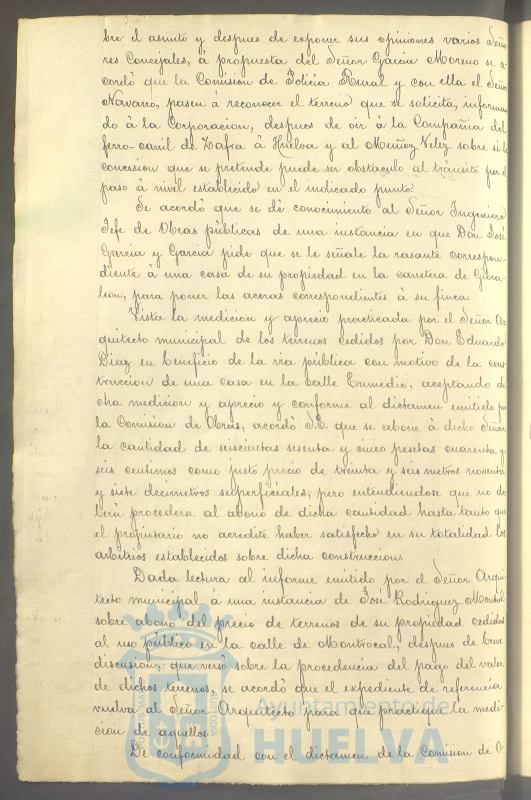 bre el asunto y despues de exponer sus opiniones varios Seño-
res Concejales, á propuesta del Señor García Moreno se a-
cordó que la Comision de Policia Rural y con ella el Señor
Navarro, pasen á reconocer el terreno que se solicita, informan
do á la Corporacion, despues de oir á la Compañia del
ferro-carril de Zafra á Huelva y al Muñoz Velez sobre si la
concesion que se pretende puede ser obstáculo al tránsito por el
paso á nivel establecido en el indicado punto.
Se acordó que se dé conocimiento al Señor Ingeniero
Jefe de Obras públicas de una instancia en que Don José
Garcia y Garcia pide que se le señale la rasante correspon-
diente á una casa de su propiedad en la carretera de Gibra-
leon, para poner las aceras correspondientes á su finca.
Vista la medicion y aprecio practicada por el Señor Ar
quitecto municipal de los terrenos cedidos por Don Eduardo
Diaz en beneficio de la via pública con motivo de la cons
truccion de una casa en la calle Enmedio, aceptando di
cha medicion y aprecio y conforme al dictamen emitido por
la Comision de Obras, acordó S.E. que se abone á dicho Señor
la cantidad de seiscientas sesenta y cinco pesetas cuarenta y
seis centimos como justo precio de treinta y seis metros noventa
y siete decimetros superficiales; pero entendiendose que no de
berá procederse al abono de dicha cantidad hasta tanto que
el propietario no acredite haber satisfecho en su totalidad los
arbitrios establecidos sobre dicha construccion.
Dada lectura al informe emitido por el Señor Arqui-
tecto municipal á una instancia de José Rodriguez
sobre abono del precio de terrenos de su propiedad cedidos
al uso público en la calle de Montrocal, despues de breve
discusion, que versó sobre la procedencia del pago del valor
de dichos terrenos, se acordó que el expediente de referencia
vuelva al Señor Arquitecto para que practique la medi-
cion de aquellos.
De conformidad con el dictamen de la Comision de O-
Ayuntamiento de
HUELVA